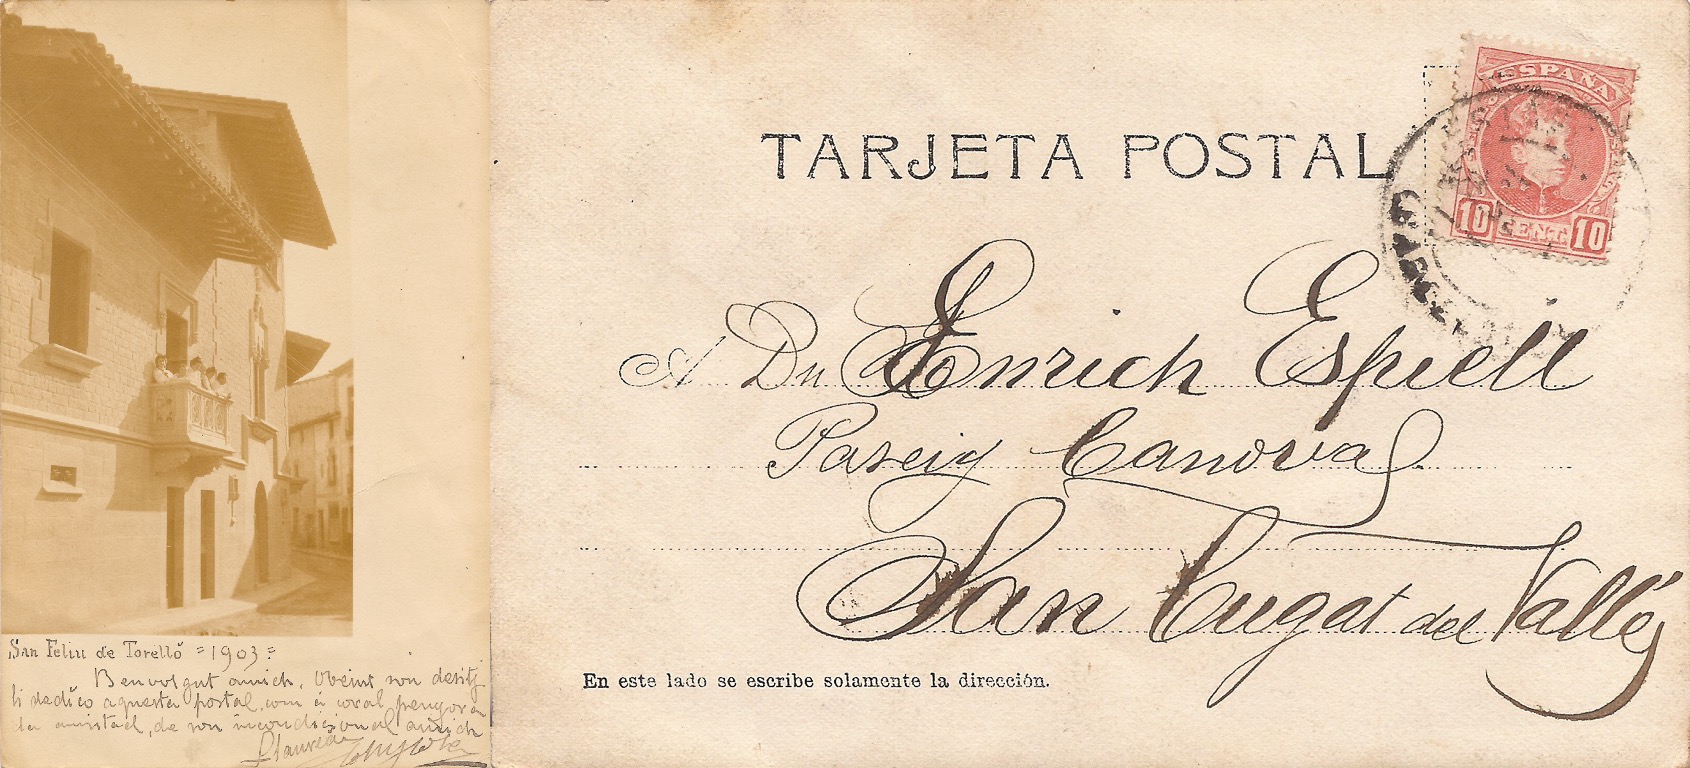 San Feliu de Torelló =1903=
Benvolgut amich. Obeint son desitj
li dedico aquesta postal, com á coral penyora
la amistad, de son incondicional amich
TARJETA POSTAL
ESPAÑA
10 CENT. 10
BARCELONA
A Dn Enrich Espiell
Paseig Canovas
San Cugat del Vallés
En este lado se escribe solamente la dirección.